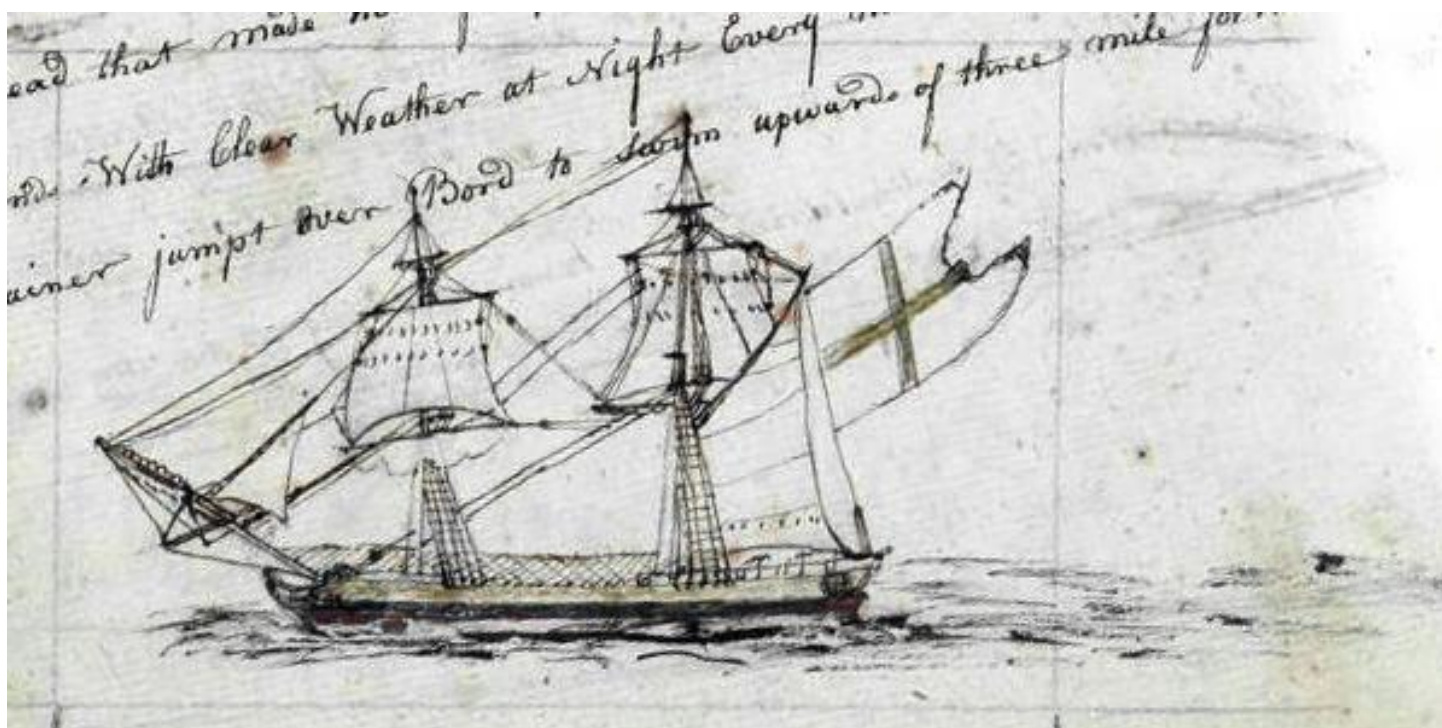 ead that made
With Clear Weather at Night Every
ainer jumpt over Bord to swim upwards of three mile for